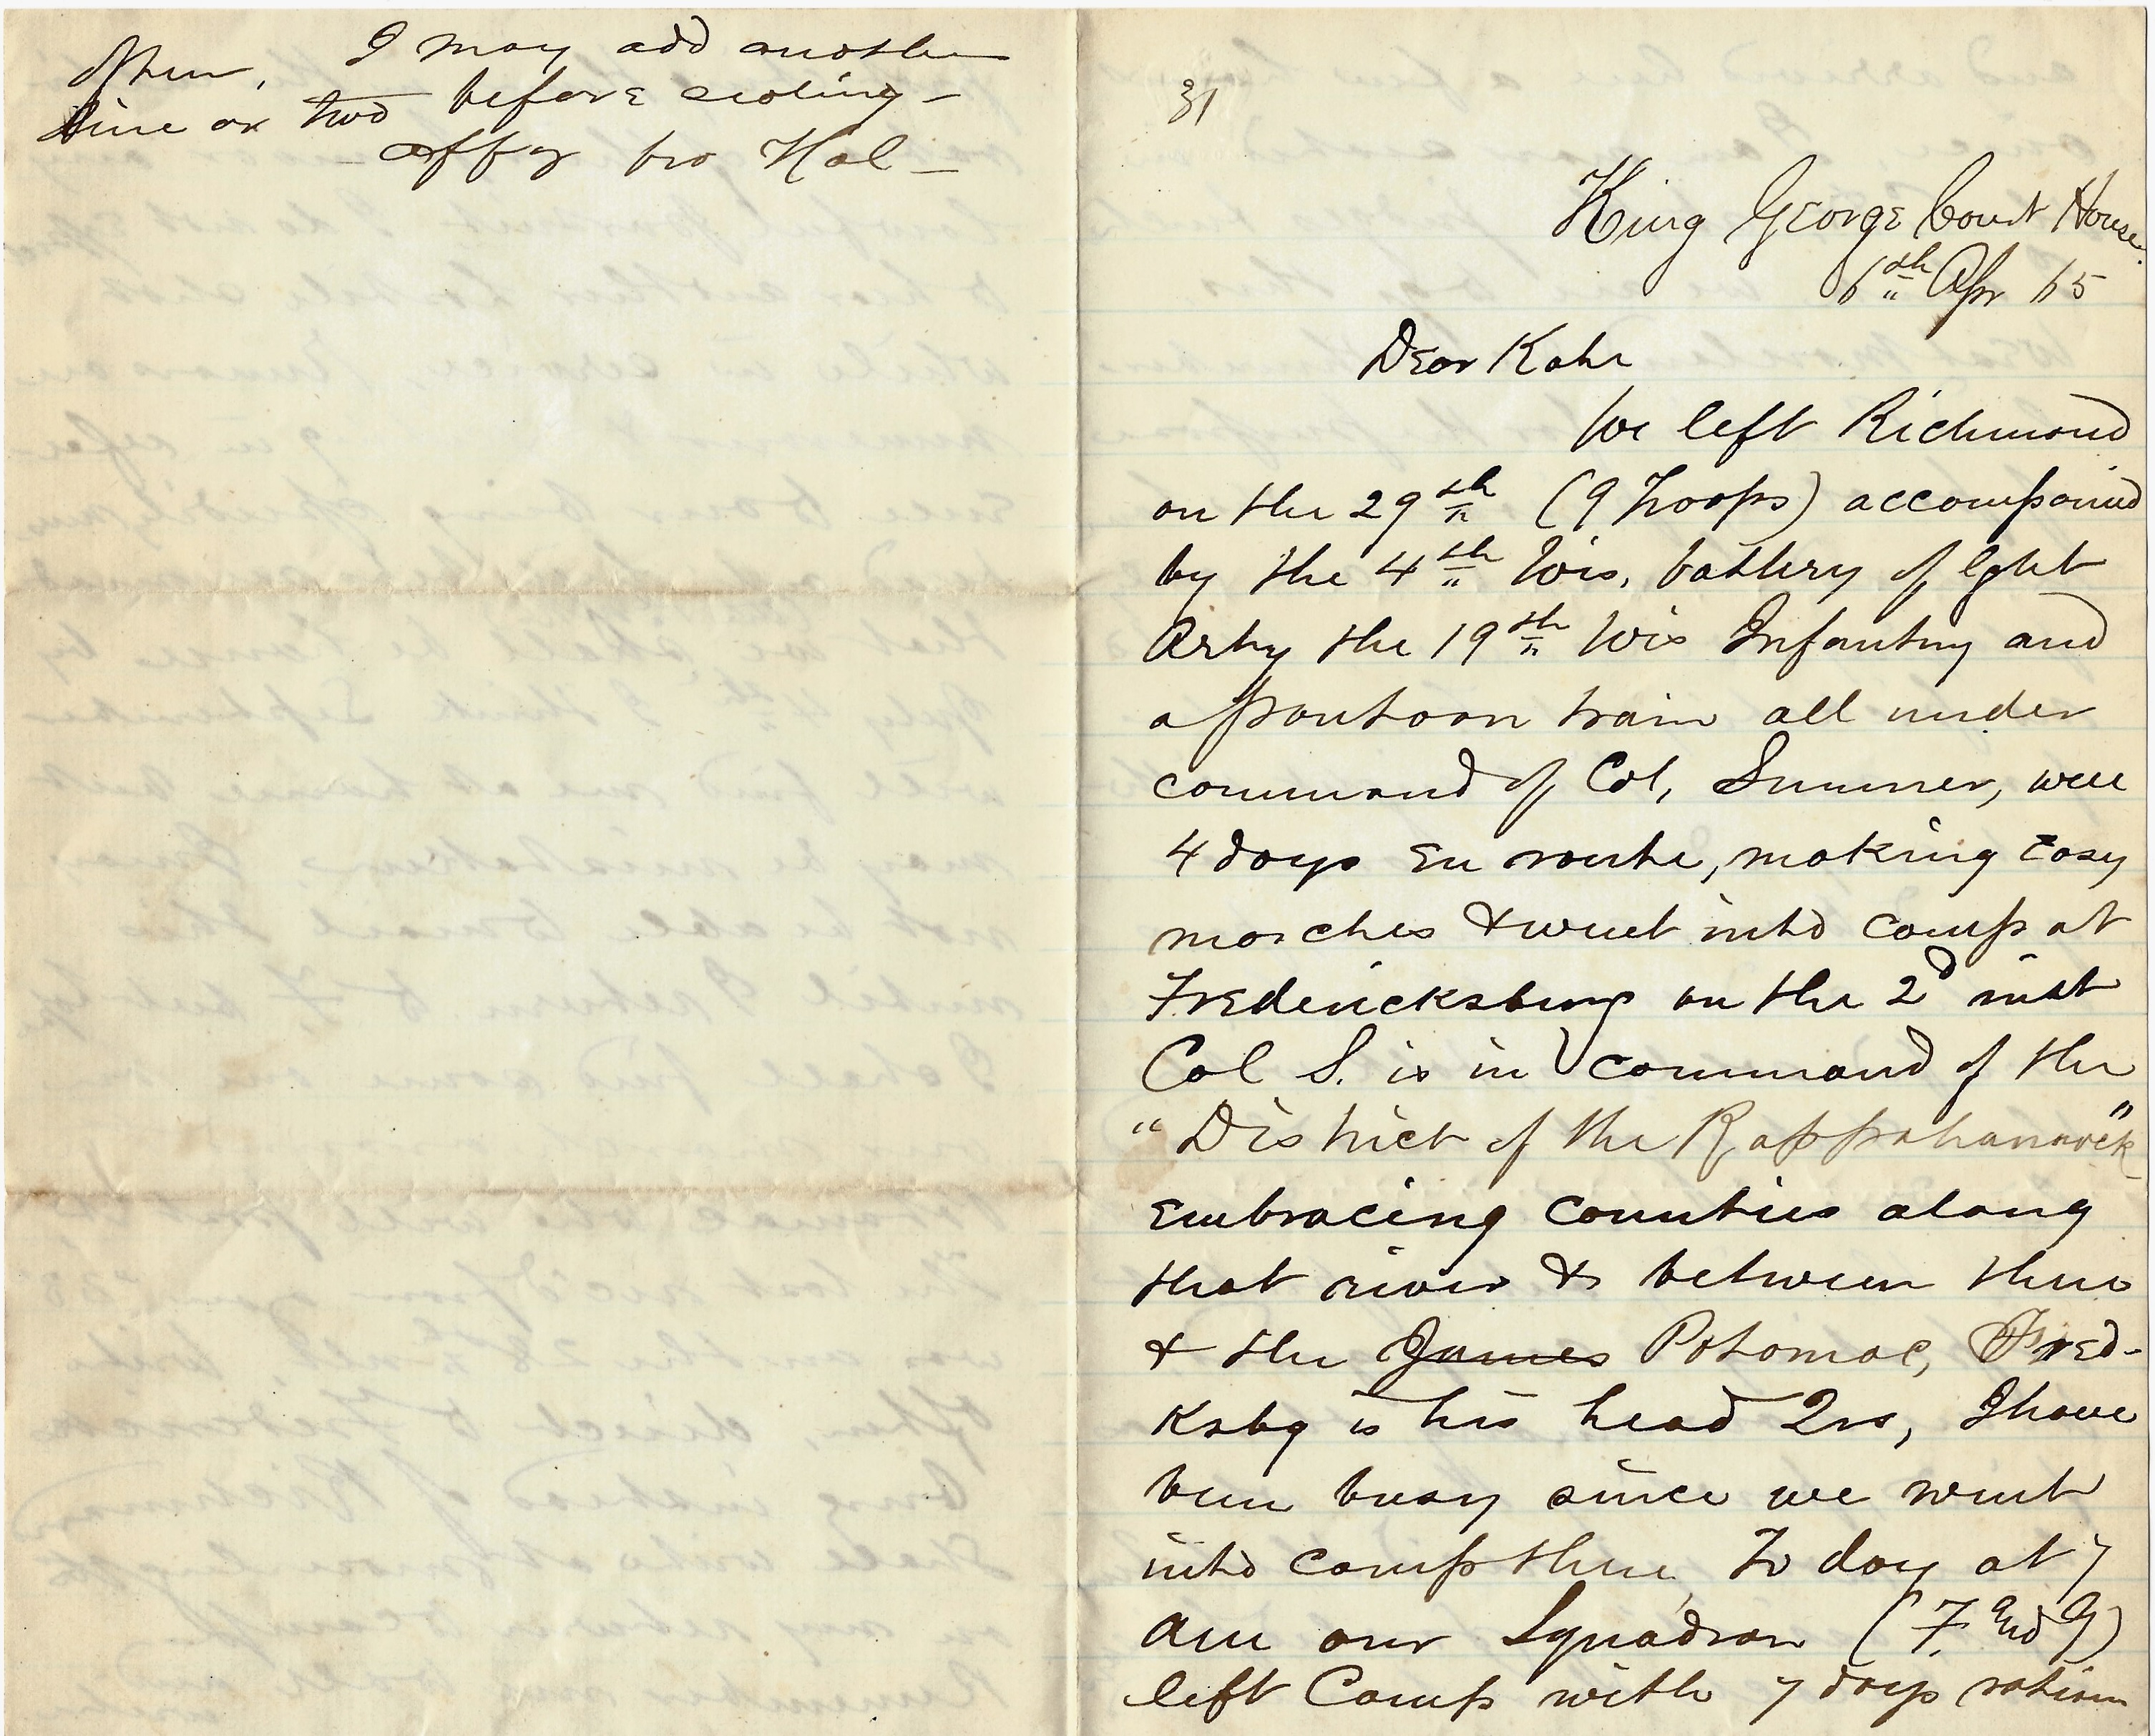 often, I may add another
line or two before sealing –
– affy bro Hal –
31
King George Court House.
6th Apr 65
Dear Kate
We left Richmond
on the 29th (9 troops) accompanied
by the 4th Wis, battery of lght
Arty the 19th Wis Infantry and
a pontoon train all under
command of Col, Sumner, were
4 days En route, making Easy
marches & went into camp at
Fredericksburg on the 2d inst
Col S. is in command of the
"District of the Rappahannock"
Embracing counties along
that river & between there
& the James Potomac, Fred-
Ksbg is his head Qrs, I have
been busy since we went
into camp there To day at 7
am our Squadron (F. and G)
left Camp with 7 days rations